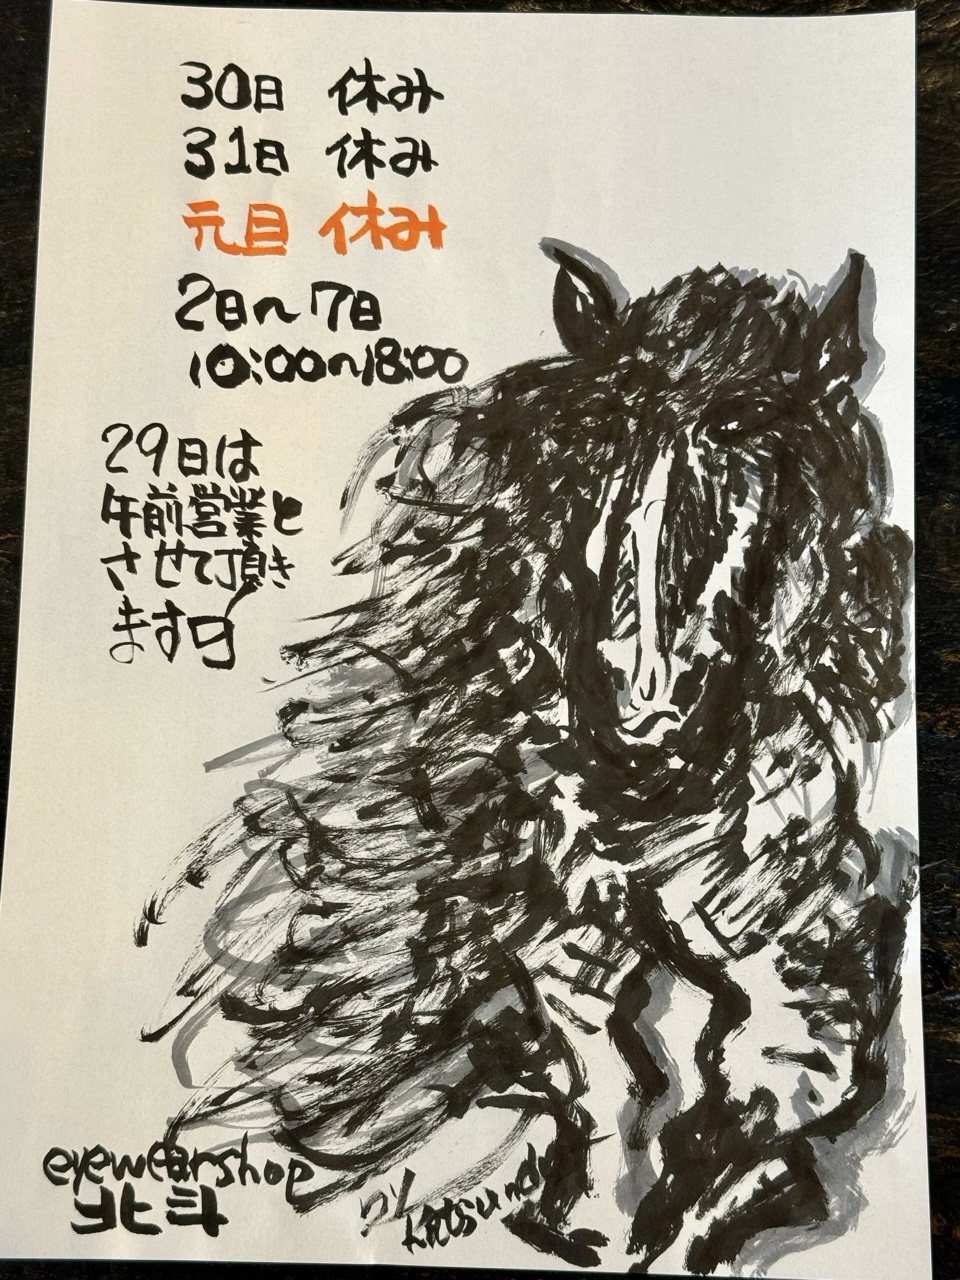 30日 休み
31日 休み
元旦 休み
2日〜7日
10:00〜18:00
29日は
午前営業と
させて頂き
ます
eyewearshop
北斗